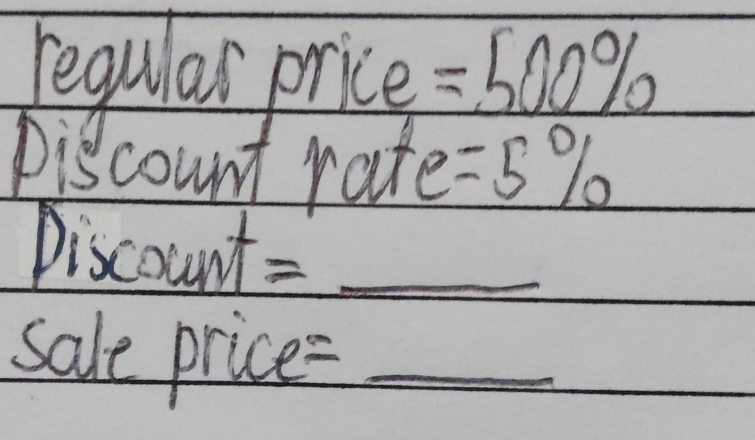 regular price = 500%
Discount rate = 5%
Discount = ________
sale price = ________